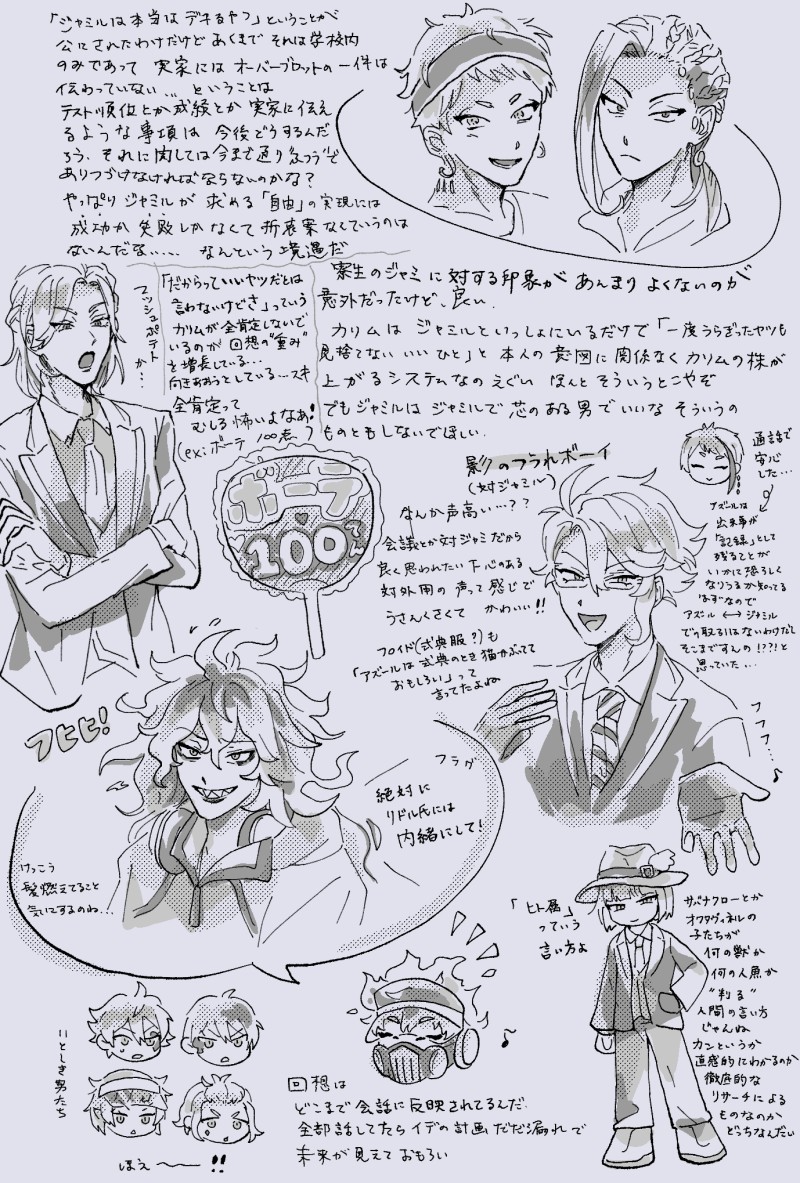 「ジャミルは本当はデキるヤツ」ということが
公にされたわけだけど あくまで それは学校内
のみであって 実家には オーバーブロットの一件は
伝わっていない… ということは
テスト順位とか成績とか 実家に伝え
るような事項は 今後どうするんだ
ろう、それに関しては今まで通り"ふつう"で
ありつづけなければならないのかな？
やっぱり ジャミルが 求める「自由」の実現には
成功か 失敗しかなくて 折衷案なくていうのは
ないんだな…… なんという境遇だ
寮生のジャミに対する印象が あんまり よくないのが
意外だったけど、良い.
カリムは ジャミルといっしょにいるだけで「一度うらぎったヤツも
見捨てない いい ひと」と 本人の意図に関係なく カリムの株が
上がるシステムなの えぐい ほんと そういうとこやぞ
でもジャミルは ジャミルで 芯のある男でいいな そういうの
ものともしないでほしい.
マッシュポテト
か…
「だからっていいヤツだとは
言わないけどさ」っていう
カリムが全肯定しないで
いるのが 回想の"重み"
を増長している…
向きあおうとしている…スキ
全肯定って
むしろ怖いよなあ！
(ex：ボーテ 100点)
ボーテ
100てん
影のうられボーイ
(対ジャミル)
なんか声高い…？？
会議とか対ジャミだから
良く思われたい下心のある
対外用の声って感じで
うさんくさくて かわいい!!
フロイド(式典服？)も
「アズールは式典のとき猫かぶってて
おもしろい」って
言ってたよね
通話で
安心
した…
アズールは
出来事が
「記録」として
残ることが
いかに恐ろしく
なりうるか知ってる
はずなので
アズール ⟷ ジャミル
での取引はないわけだし
そこまですんの!???と
思っていた…
フフフ…♪
フヒヒ！
フラグ
絶対に
リドル氏には
内緒にして！
けっこう
髪燃えてること
気にするのね…
「ヒト属」
っていう
言い方よ
サバナクローとか
オクタヴィネルの
子たちが
何の獣か
何の人魚か
"判る"
人間の言い方
じゃんね
カンというか
直感的にわかるのか
徹底的な
リサーチによる
ものなのか
どっちなんだい
いとしき男たち
ほえ〜〜!!
♪
回想は
どこまで会話に反映されてるんだ.
全部話してたら イデの計画だだ漏れで
未来が見えて おもろい